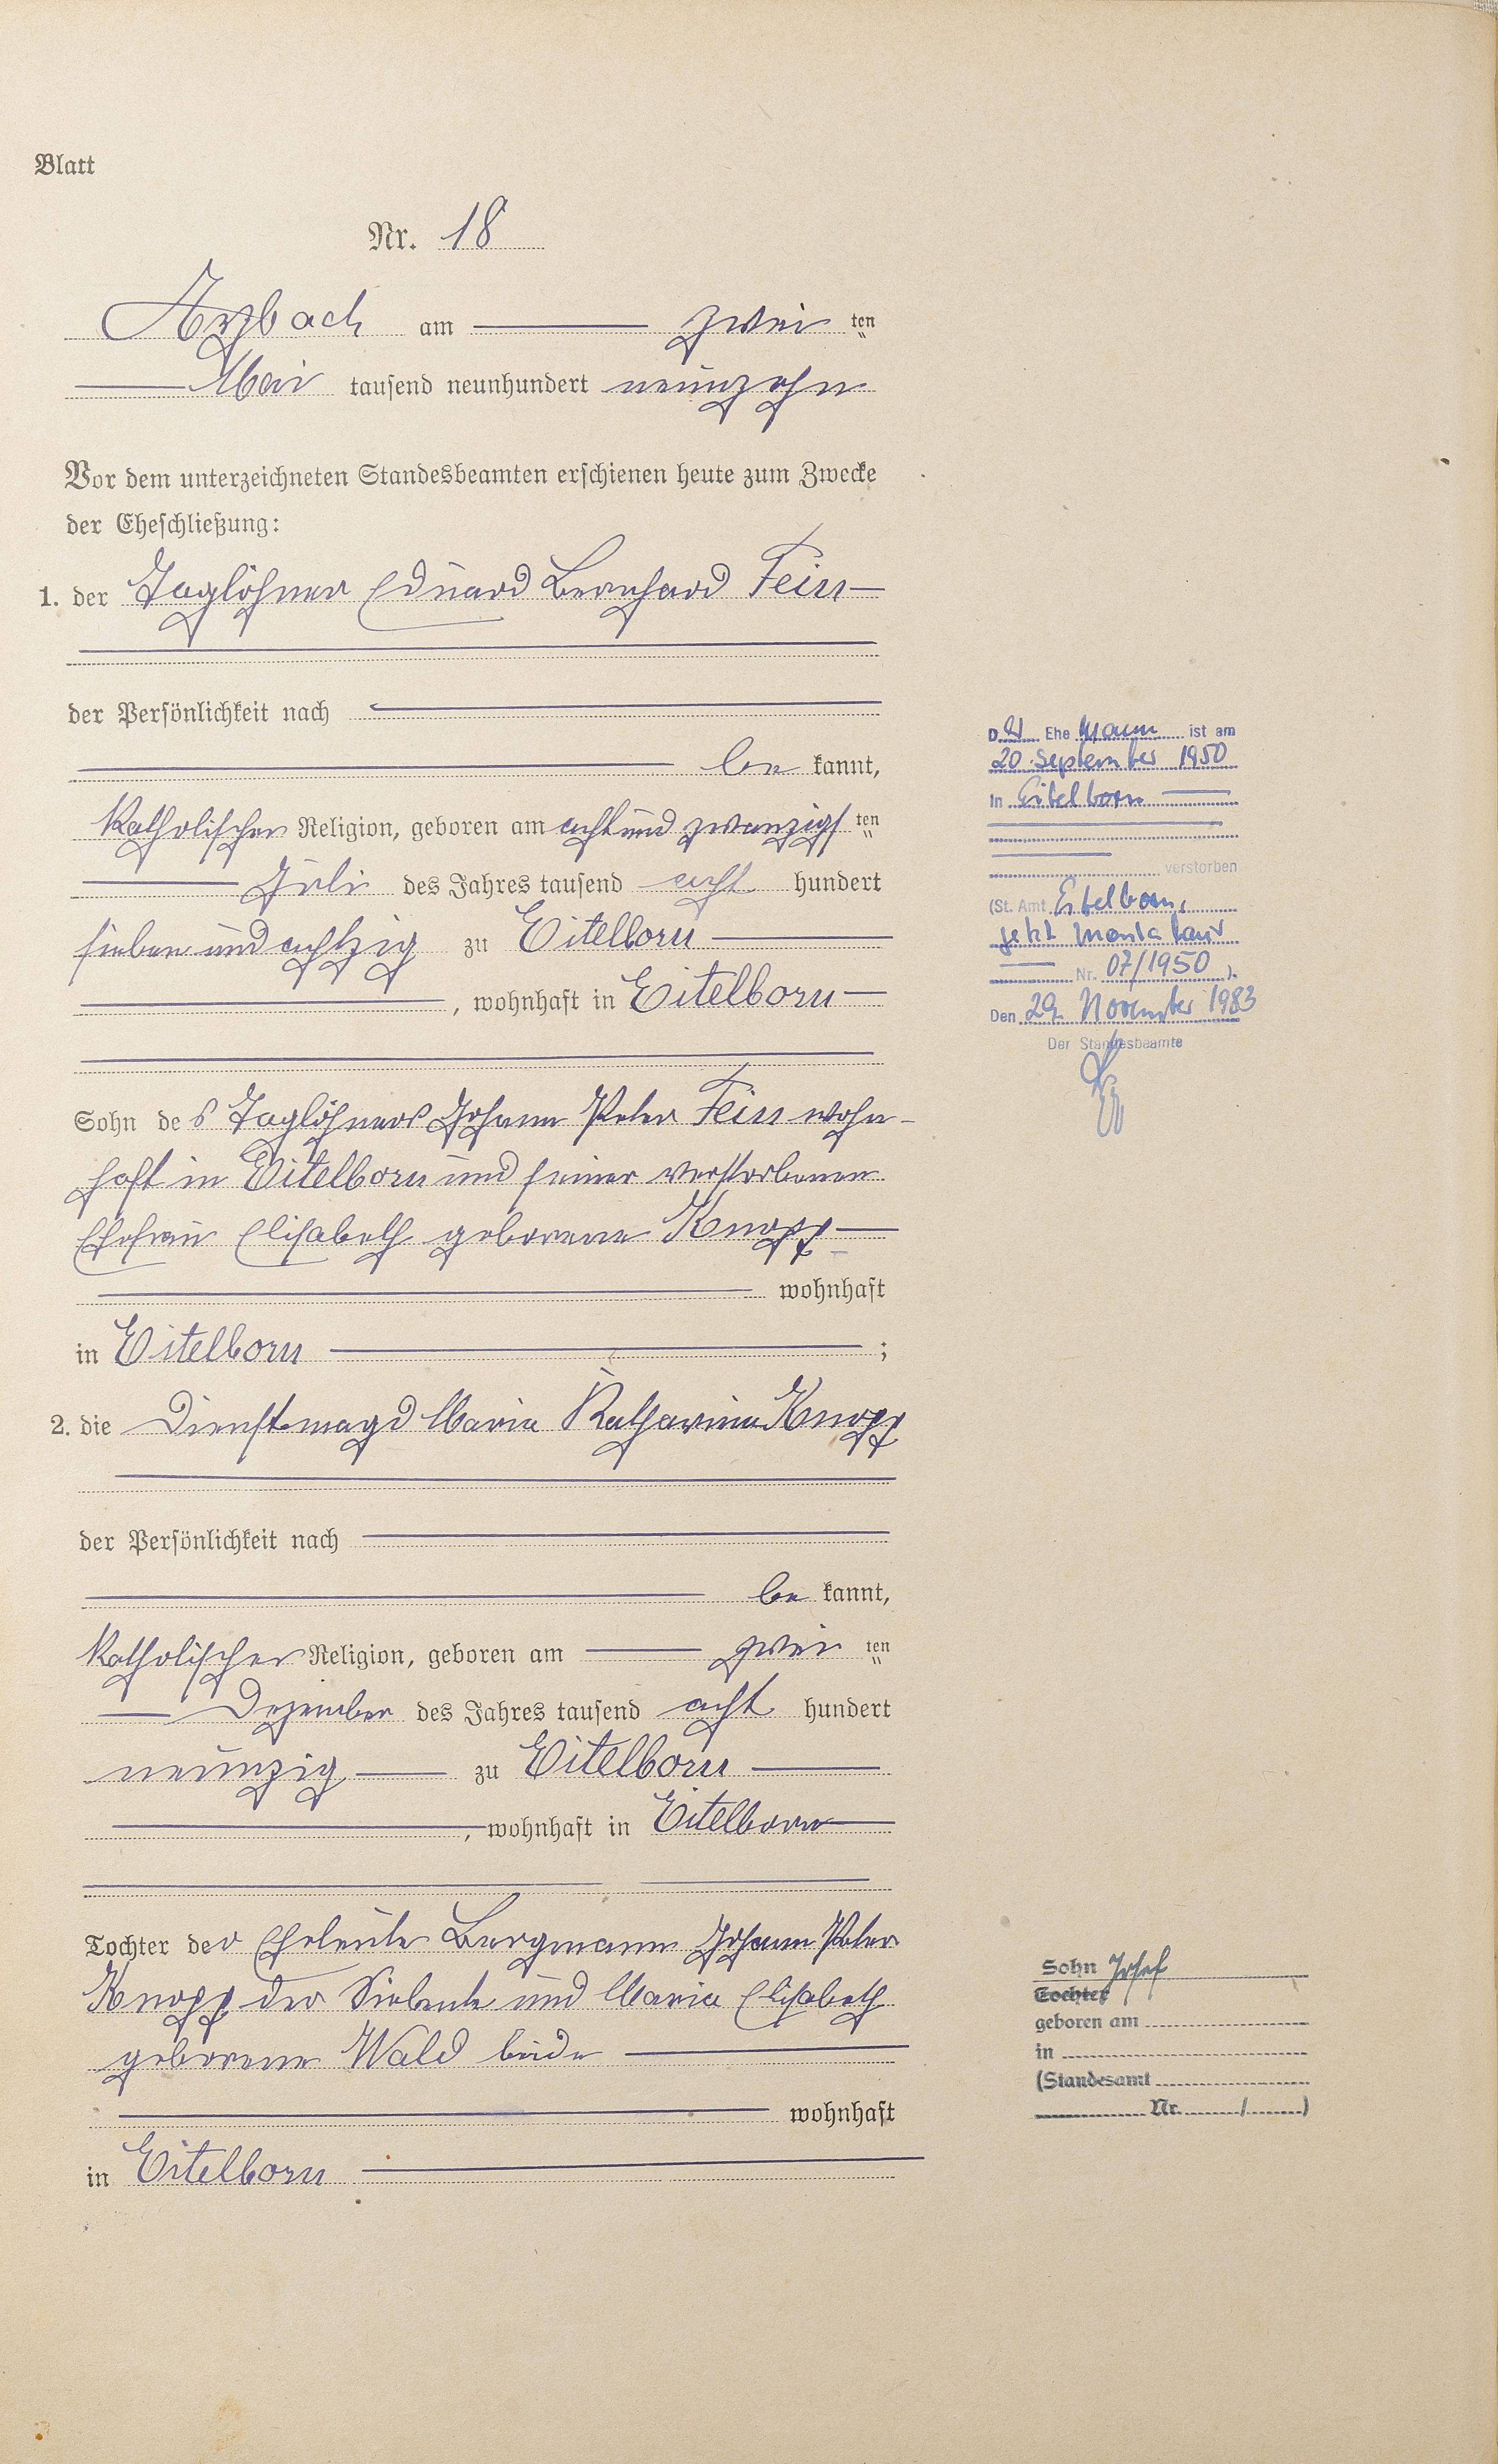 Blatt
Nr. 18
Arzbach am zwei ten
Mai tausend neunhundert neunzehn
Vor dem unterzeichneten Standesbeamten erschienen heute zum Zwecke
der Eheschließung:
1. der Taglöhner Eduard Bernhard Feis
der Persönlichkeit nach
be kannt,
katholischer Religion, geboren am acht und zwanzigs ten
Juli des Jahres tausend acht hundert
sieben und achtzig zu Eitelborn
, wohnhaft in Eitelborn
Sohn des Taglöhners Johann Peter Feis wohn-
haft in Eitelborn und seiner verstorbenen
Ehefrau Elisabeth geborene Knopp
wohnhaft
in Eitelborn ;
2. die Dienstmagd Maria Katharina Knopp
der Persönlichkeit nach
be kannt,
katholischer Religion, geboren am zwei ten
Dezember des Jahres tausend acht hundert
neunzig zu Eitelborn
, wohnhaft in Eitelborn
Tochter der Eheleute Bergmann Johann Peter
Knopp der Siebente und Maria Elisabeth
geborene Wald beide
wohnhaft
in Eitelborn
D. Ehe Mann ist am
20. September 1950
in Eitelborn
verstorben
(St. Amt Eitelborn,
jetzt Montabaur
Nr. 07/1950 ).
Den 29. November 1983
Der Standesbeamte
Sohn Josef
Tochter
geboren am
in
(Standesamt
Nr. / )